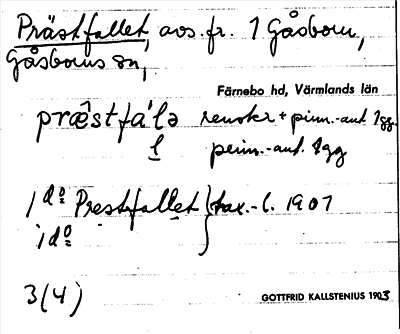 Prästfallet, avs. fr. 1 Gåsborn,
Gåsborns sn,
Färnebo hd, Värmlands län
præ̂stfa'lə renskr + prim.-ant. 1gg.
l prim.-ant. 1gg
1 do Prestfallet } tax.-l. 1907
1 do
3(4)
GOTTFRID KALLSTENIUS 1903